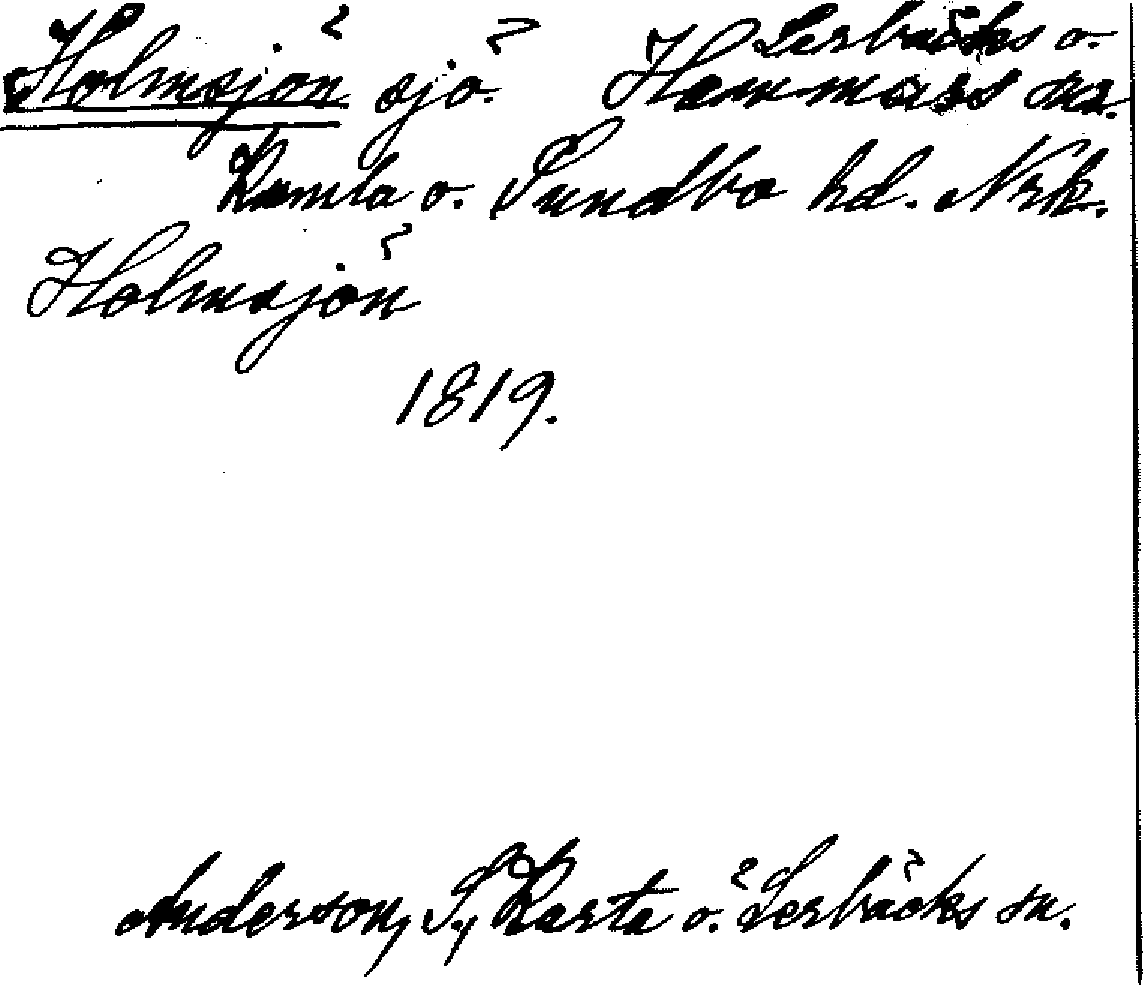 Holmsjön sjö. Lerbäcks o.
Hammars snr.
Kumla o. Sundbo hd. Nrk.
Holmsjön
1819.
Anderson, S., Karta ö. Lerbäcks sn.